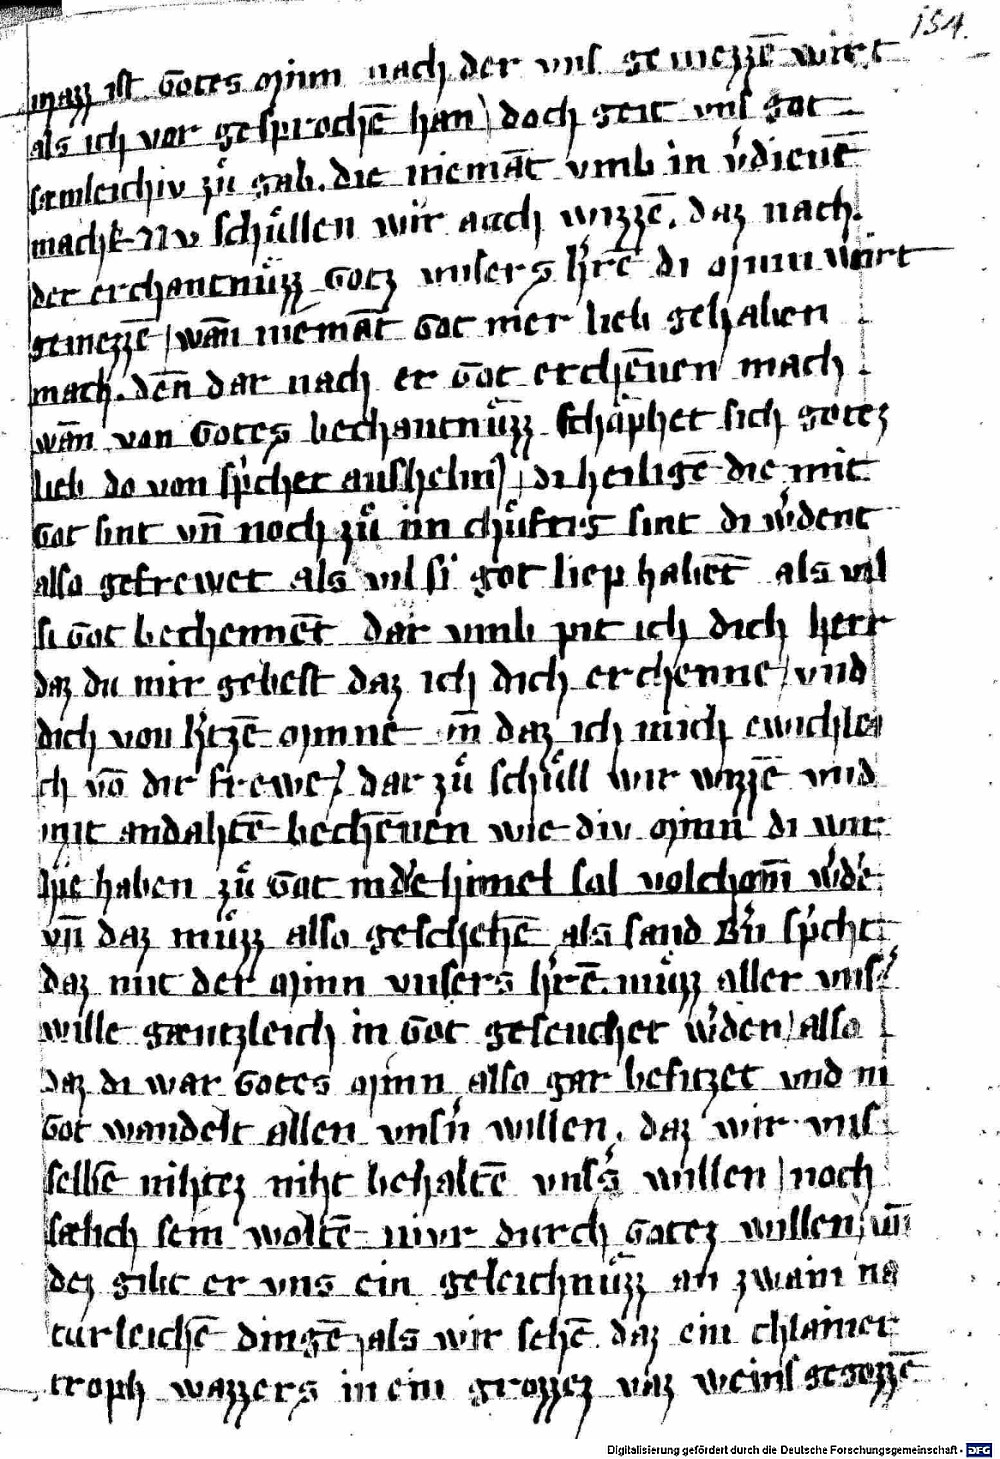 154.
mazz ist Gotes minn nach der vns gemezzē wirt
als ich vor gesprochē han doch geit vns got
sæmleichiv zuͦ gab. die niemāt vmb in v̓dienē
mach Nv schuͤllen wir auch wizzē. daz nach
der erchantnuͤzz Gotz vnsers h̓rē di minn wirt
gemezzē wān niemāt Got mer lieb gehaben
mach. dēn dar nach er Got erchēnen mach
wān von Gotes bechantnuͤzz schāphet sich gotez
lieb do von sp̓chet anshelm di heiligē die mit
Got sint vn̄ noch zuͦ im chuͤftig sint di w̓dent
also gefrewet als vil si got liep habēt als vil
si Got bechennēt dar vmb pit ich dich herr
daz du mir gebest daz ich dich erchenne vnd
dich von h̓tzē minne vn̄ daz ich mich ewichlei
ch vō dir frewe dar zuͦ schuͤll wir wizzē vnd
mit andahtē bechēnen wie div minn di wir
hie haben zuͦ Got in d̓ himel sal volchom̄ w̓dē
vn̄ daz muͤzz also geschehē als sand B̓n sp̓cht
daz mit der minn vnsers h̓rē muͤzz aller vns̓
wille gæntzleich in Got gesencher w̓den also
daz di war Gotes minn also gar besitzet vnd in
Got wandelt allen vns̓n willen. daz wir vns
selbē nihtez niht behaltē vns̓s willen noch
sælich sein woltē nivr durch Gotez willen vn̄
dez gibt er vns ein geleichnuͤzz an zwain na
turleichē dingē als wir sehē daz ein chlainer
troph wazzers in ein grozzez vaz weins gegozzē
Digitalisierung gefördert durch die Deutsche Forschungsgemeinschaft - DFG